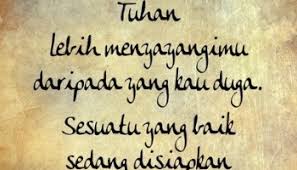 Tuhan
lebih menyayangimu
daripada yang kau duga.
Sesuatu yang baik
sedang disiapkan